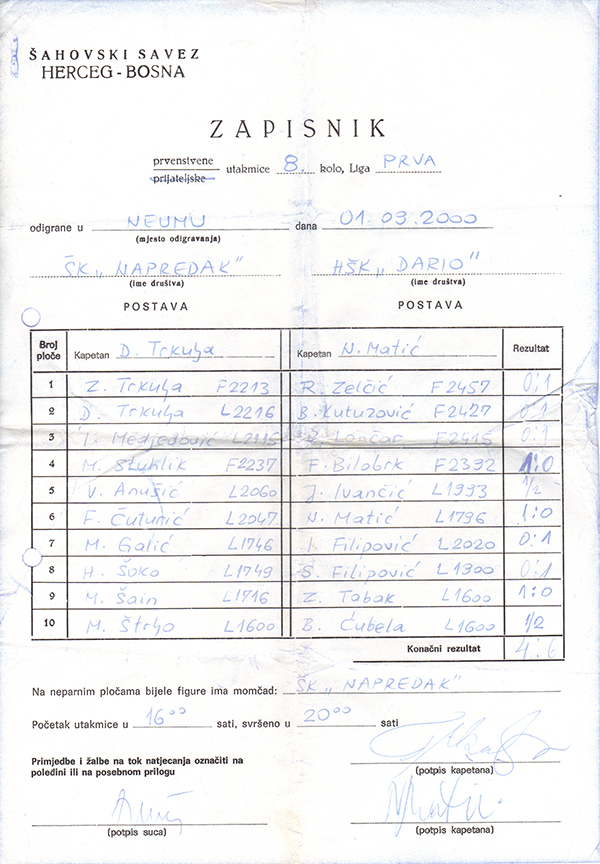 ŠAHOVSKI SAVEZ
HERCEG-BOSNA
ZAPISNIK
prvenstvene
prijateljske
utakmice 8. kolo, Liga PRVA
odigrane u NEUMU dana 01.03.2000
(mjesto odigravanja)
ŠK „NAPREDAK" HŠK „DARIO"
(ime društva) (ime društva)
POSTAVA POSTAVA
Broj ploče Kapetan D. Trkulja Kapetan N. Matić Rezultat
1 Z. Trkulja F2213 R. Zelčić F2457 0:1
2 D. Trkulja L2216 B. Kutuzović F2427 0:1
3 Medjedović L2115 Lončar F2415 0:1
4 M. Stuklik F2237 F. Bilobrk F2392 1:0
5 V. Anušić L2060 J. Ivančić L1993 1/2
6 F. Čuturić L2047 N. Matić L1796 1:0
7 M. Galić L1746 I. Filipović L2020 0:1
8 H. Šoko L1749 S. Filipović L1900 0:1
9 M. Šain L1716 Z. Tabak L1600 1:0
10 M. Štrljo L1600 B. Ćubela L1600 1/2
Konačni rezultat 4:6
Na neparnim pločama bijele figure ima momčad: ŠK „NAPREDAK"
Početak utakmice u 16⁰⁰ sati, svršeno u 20⁰⁰ sati
Primjedbe i žalbe na tok natjecanja označiti na
poleđini ili na posebnom prilogu
(potpis kapetana)
(potpis suca) (potpis kapetana)